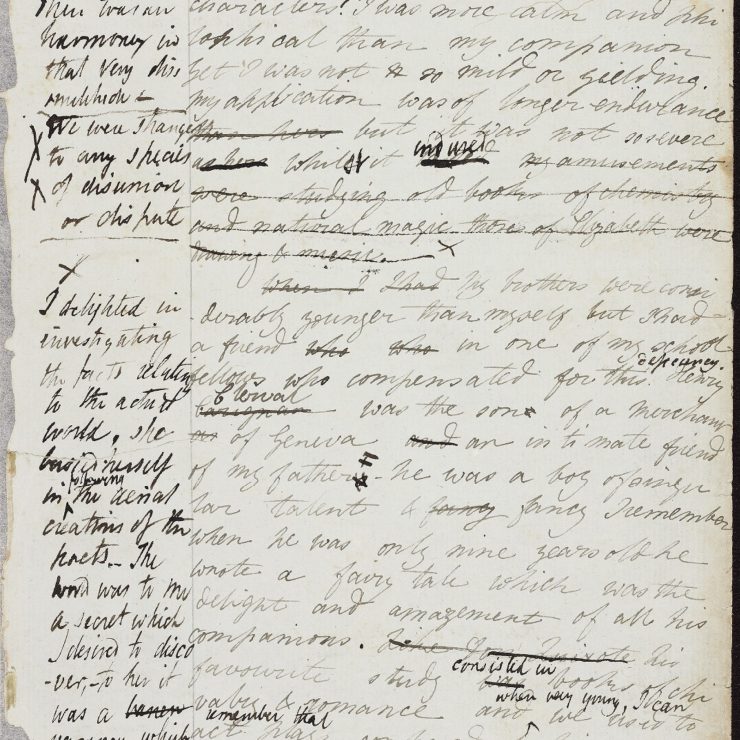 then was an
harmony in
that very dis
similitude –
We were strangers
to any species
of disunion
or dispute
X
I delighted in
investigating
the facts relating
to the actual
world, she
busied herself
in following the aerial
creations of the
poets – The
world was to me
a secret which
I desired to disco
-ver, – to her it
was a
vacancy which
characters! I was more calm and phi
losophical than my companion
yet I was not so mild or yielding.
my application was of longer endurance
than hers but it was not so severe
as hers whilst it endured my amusements
were studying old books of chemistry
and natural magic those of Elizabeth were
drawing & music. X
when I I had My brothers were consi
-derably younger than myself but I had
a friend who who in one of my school
fellows who compensated for this deficiency. Henry
Clerval was the son of a merchant
as of Geneva and an intimate friend
of my father – he was a boy of singu
lar talent & fancy fancy I remember
when he was only nine years old he
wrote a fairy tale which was the
delight and amazement of all his
companions. Like Don Quixote his
favourite study consisted in books of chi
valry & romance and when very young, I can
remember, that we used to
act plays